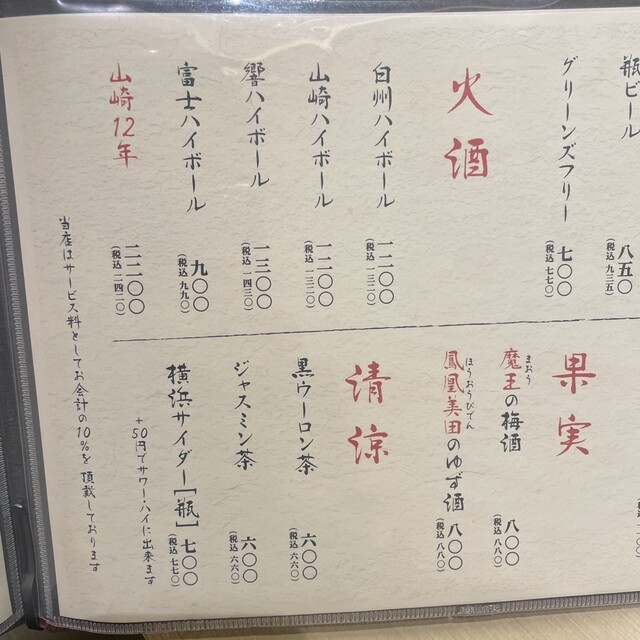 瓶ビール
八五〇
(税込 九三五)
グリーンズフリー
七〇〇
(税込 七七〇)
火酒
白州ハイボール
一二〇〇
(税込 一三二〇)
山崎ハイボール
一二〇〇
(税込 一三二〇)
響ハイボール
一三〇〇
(税込 一四三〇)
富士ハイボール
九〇〇
(税込 九九〇)
山崎12年
二二〇〇
(税込 二四二〇)
果実
まおう
魔王の梅酒
八〇〇
(税込 八八〇)
ほうおうびでん
鳳凰美田のゆず酒
八〇〇
(税込 八八〇)
清涼
黒ウーロン茶
六〇〇
(税込 六六〇)
ジャスミン茶
六〇〇
(税込 六六〇)
横浜サイダー[瓶]
七〇〇
(税込 七七〇)
+50円でサワー・ハイに出来ます
当店はサービス料としてお会計の10%を頂戴しております